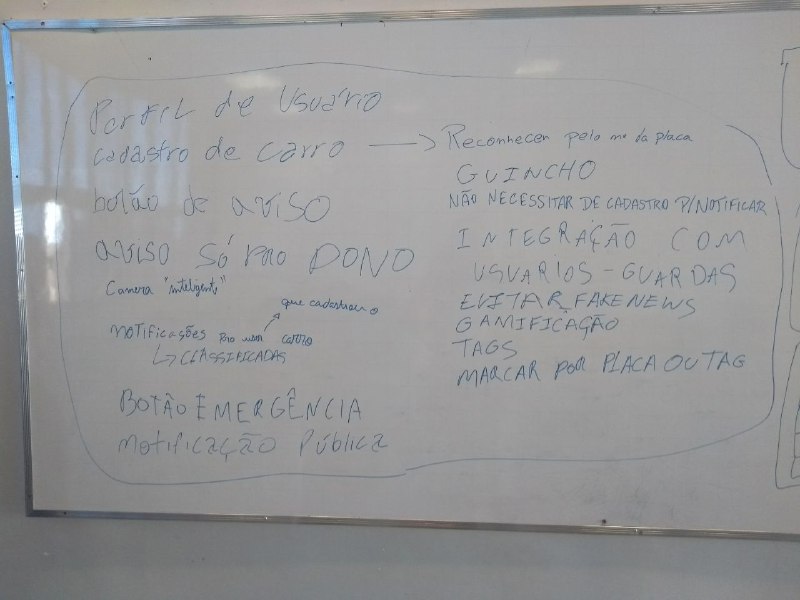 Perfil de Usuário
cadastro de carro → Reconhecer pelo nº da placa
botão de aviso
aviso só pro DONO
Camera "inteligente"
que cadastrou o
notificações pro user carro
↳ CLASSIFICADAS
BOTÃO EMERGÊNCIA
notificação Pública
GUINCHO
NÃO NECESSITAR DE CADASTRO P/NOTIFICAR
INTEGRAÇÃO COM
USUARIOS - GUARDAS
EVITAR FAKE NEWS
GAMIFICAÇÃO
TAGS
MARCAR POR PLACA OU TAG